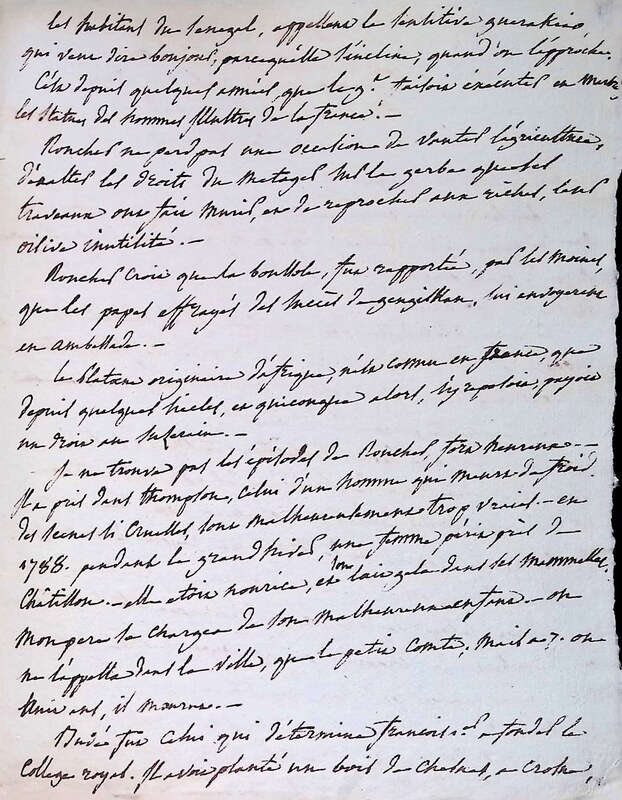 les habitans du senegal, appellent la sensitive guerakiao
qui veut dire bonjour, parcequ'elle s'incline, quand on l'approche.
C'est depuis quelques années, que le g.t faisoit exécuter en marbre
les statues des hommes illustres de la france. -
Roucher ne perd pas une occasion de vanter l'agriculture,
d'exalter les droits du metayer sur la gerbe que ses
travaux ont fait murir, et de reprocher aux riches, leur
oisive inutilité. -
Roucher croit que la boussole, fut rapportée, par les moines,
que les papes effrayés des succès de gengiskan, lui envoyerent
en ambassade. -
Le Platane originaire d'afrique, n'est connu en france, que
depuis quelques siecles, et quiconque alors, s'y reposoit, payoit
un droit au suserain. -
Je ne trouve pas les épisodes de Roucher, fort heureux. -
Il a pris dans thompson, celui d'un homme qui meurt de froid.
des scenes si cruelles, sont malheureusement trop vraies. - en
1788. pendant le grand hiver, une femme périt près de
Châtillon. - elle etoit nourrice, et son lait gela dans ses mammelles.
mon pere se chargea de son malheureux enfant. - on
ne l'appella dans la ville, que le petit comte; mais a 7. ou
huit ans, il mourut. -
Budée fut celui qui détermina francois 1.er a fonder le
College royal. Il avoit planté un bois de chesnes, a